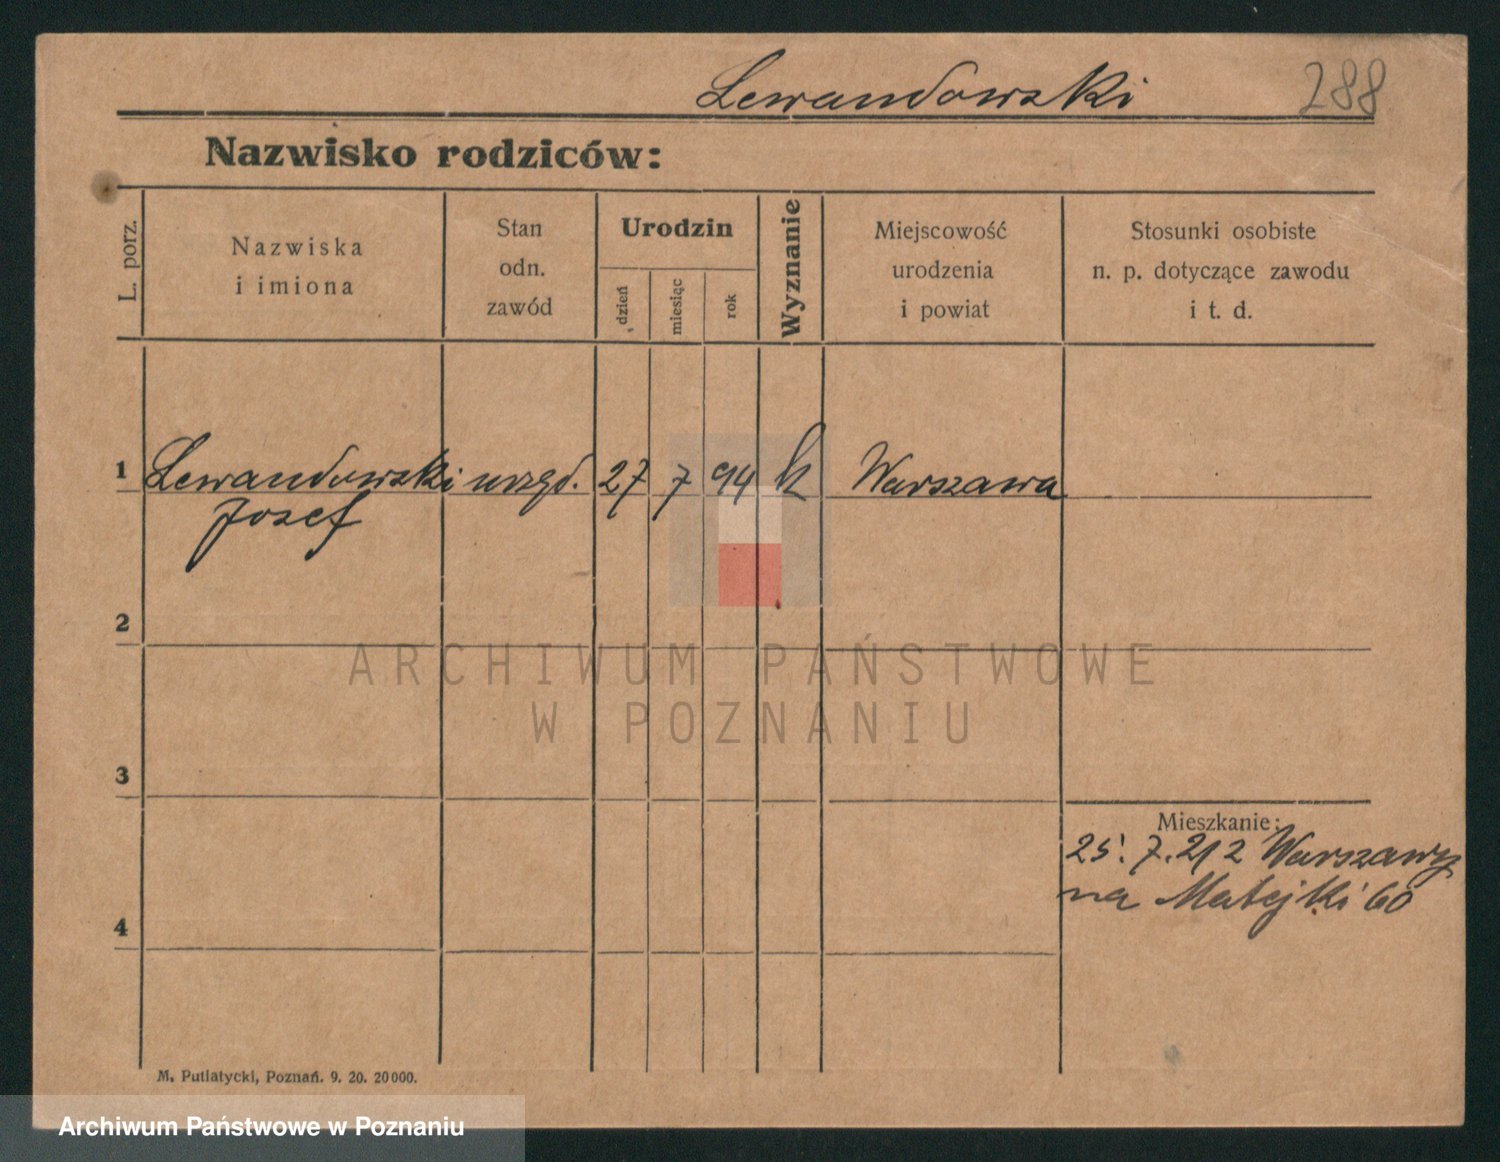 Lewandowski 288
Nazwisko rodziców:
L. porz.
Nazwiska
i imiona
Stan
odn.
zawód
Urodzin
dzień
miesiąc
rok
Wyznanie
Miejscowość
urodzenia
i powiat
Stosunki osobiste
n. p. dotyczące zawodu
i t. d.
1 Lewandowski urzęd. 27 7 94 k Warszawa
Josef
2
ARCHIWUM PAŃSTWOWE
W POZNANIU
3
Mieszkanie:
25. 7. 21 z Warszawy
na Matejki 60
4
M. Putiatycki, Poznań. 9. 20. 20000.
Archiwum Państwowe w Poznaniu